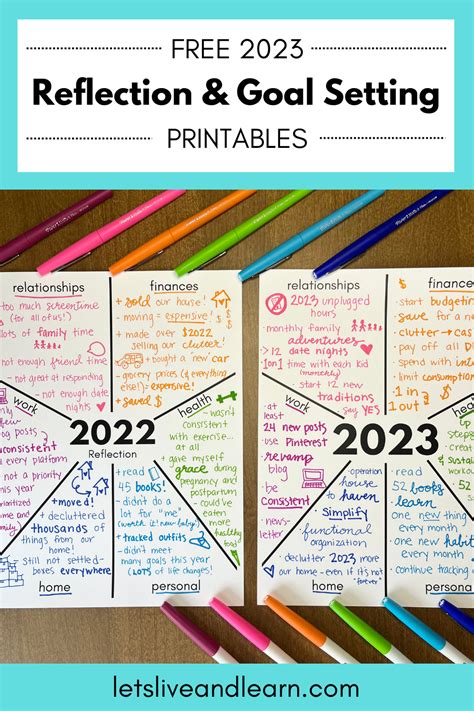 FREE 2023
Reflection & Goal Setting
PRINTABLES
relationships
- too much screentime
(for all of us!)
+ lots of family time
- not enough friend time
- not great at responding
- not enough date
nights
finances
+ sold our house!
- moving = expensive!
+ made over $2022
selling our clutter!
+ bought a new car
- grocery prices (& everything
else) = expensive!
+ saved $
work
blog posts
inconsistent
every platform
- not a priority
this year!
2022
Reflection
health
- wasn't
consistent
with exercise...
at all
+ gave myself
grace during
pregnancy and
postpartum
home
+ moved!
+ decluttered
thousands of
things from our
home!
- still not settled -
boxes everywhere
personal
+ read
45 books!
- didn't do a
lot for "me"
(worth it! new baby!)
+ tracked outfits
- didn't meet
many goals this year
(LOTS of life changes!)
relationships
2023 unplugged
hours
- monthly family
adventures
12 date nights
- 1on1 time with each kid
- start 12 new
traditions
- say YES
finances
- start budgeting
- save for a
- clutter → cas
- pay off all
- spend with
- limit consumption
1 in
1 out
work
- at
least
24 new posts
- use Pinterest
- revamp
blog
- be
consistent
news-
letter
2023
health
home
- operation
house to
haven
Simplify
- functional
organization
- declutter 2023 more
our home - even if it's not
"forever"
personal
- read
52 books
- learn
one new
thing
every month
- one new habit
every month
- continue tracking
letsliveandlearn.com